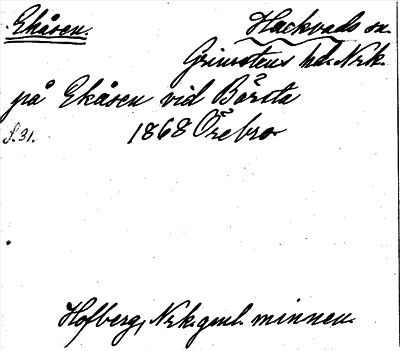 Ekåsen. Hackvads sn.
Grimstens hd. Nrk.
på Ekåsen vid Bårsta
S. 31. 1868 Örebro
Hofberg, Nrk. gml. minnen.